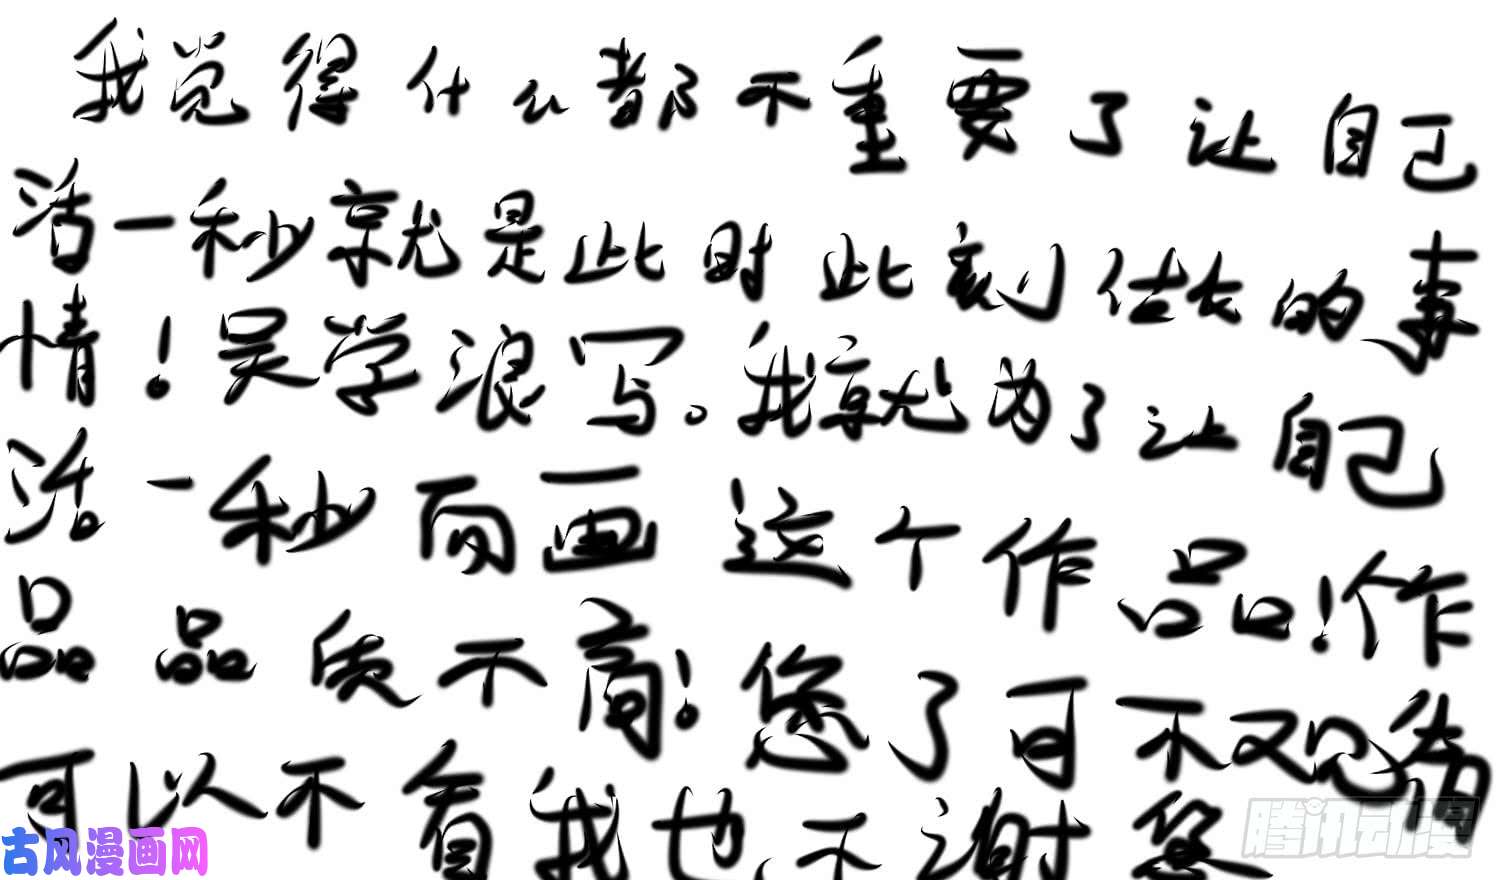 我觉得什么都不重要了让自己
活一秒就是此时此刻估长的事
情！吴学浪写。我就为了让自己
活一秒而画这个作品！作
品品质不高！您了可不又为
可以不看我也不谢您
古风漫画网
腾讯动漫